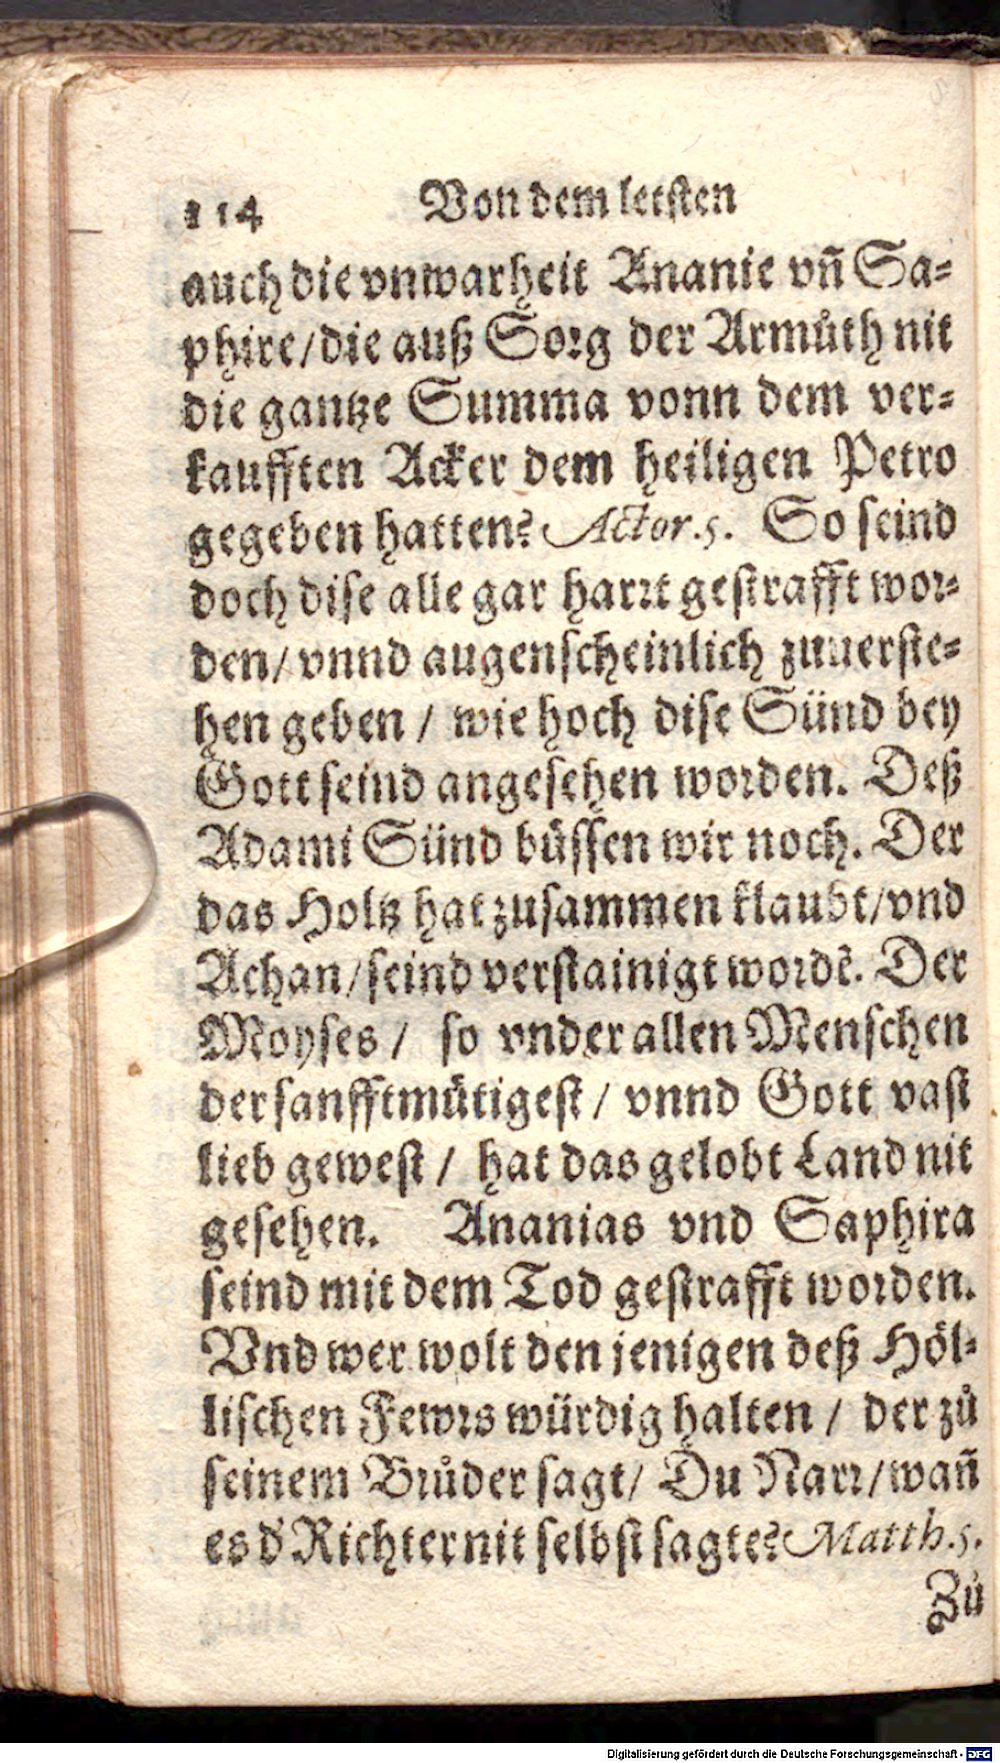 114 Von dem letsten
auch die vnwarheit Ananie vñ Sa-
phire/die auß Sorg der Armůth nit
die gantze Summa vonn dem ver-
kaufften Acker dem heiligen Petro
gegeben hatten? Actor.5. So seind
doch dise alle gar harrt gestrafft wor-
den/vnnd augenscheinlich zuuerste-
hen geben / wie hoch dise Sünd bey
Gott seind angesehen worden. Deß
Adami Sünd büssen wir noch. Der
das Holtz hat zusammen klaubt/vnd
Achan/seind verstainigt wordẽ. Der
Moyses / so vnder allen Menschen
der sanfftmütigest / vnnd Gott vast
lieb gewest / hat das gelobt Land nit
gesehen. Ananias vnd Saphira
seind mit dem Tod gestrafft worden.
Vnd wer wolt den jenigen deß Höl-
lischen Fewrs würdig halten / der zů
seinem Brůder sagt/ Du Narr/wañ
es d' Richter nit selbst sagte? Matth.5.
Zů
Digitalisierung gefördert durch die Deutsche Forschungsgemeinschaft - DFG